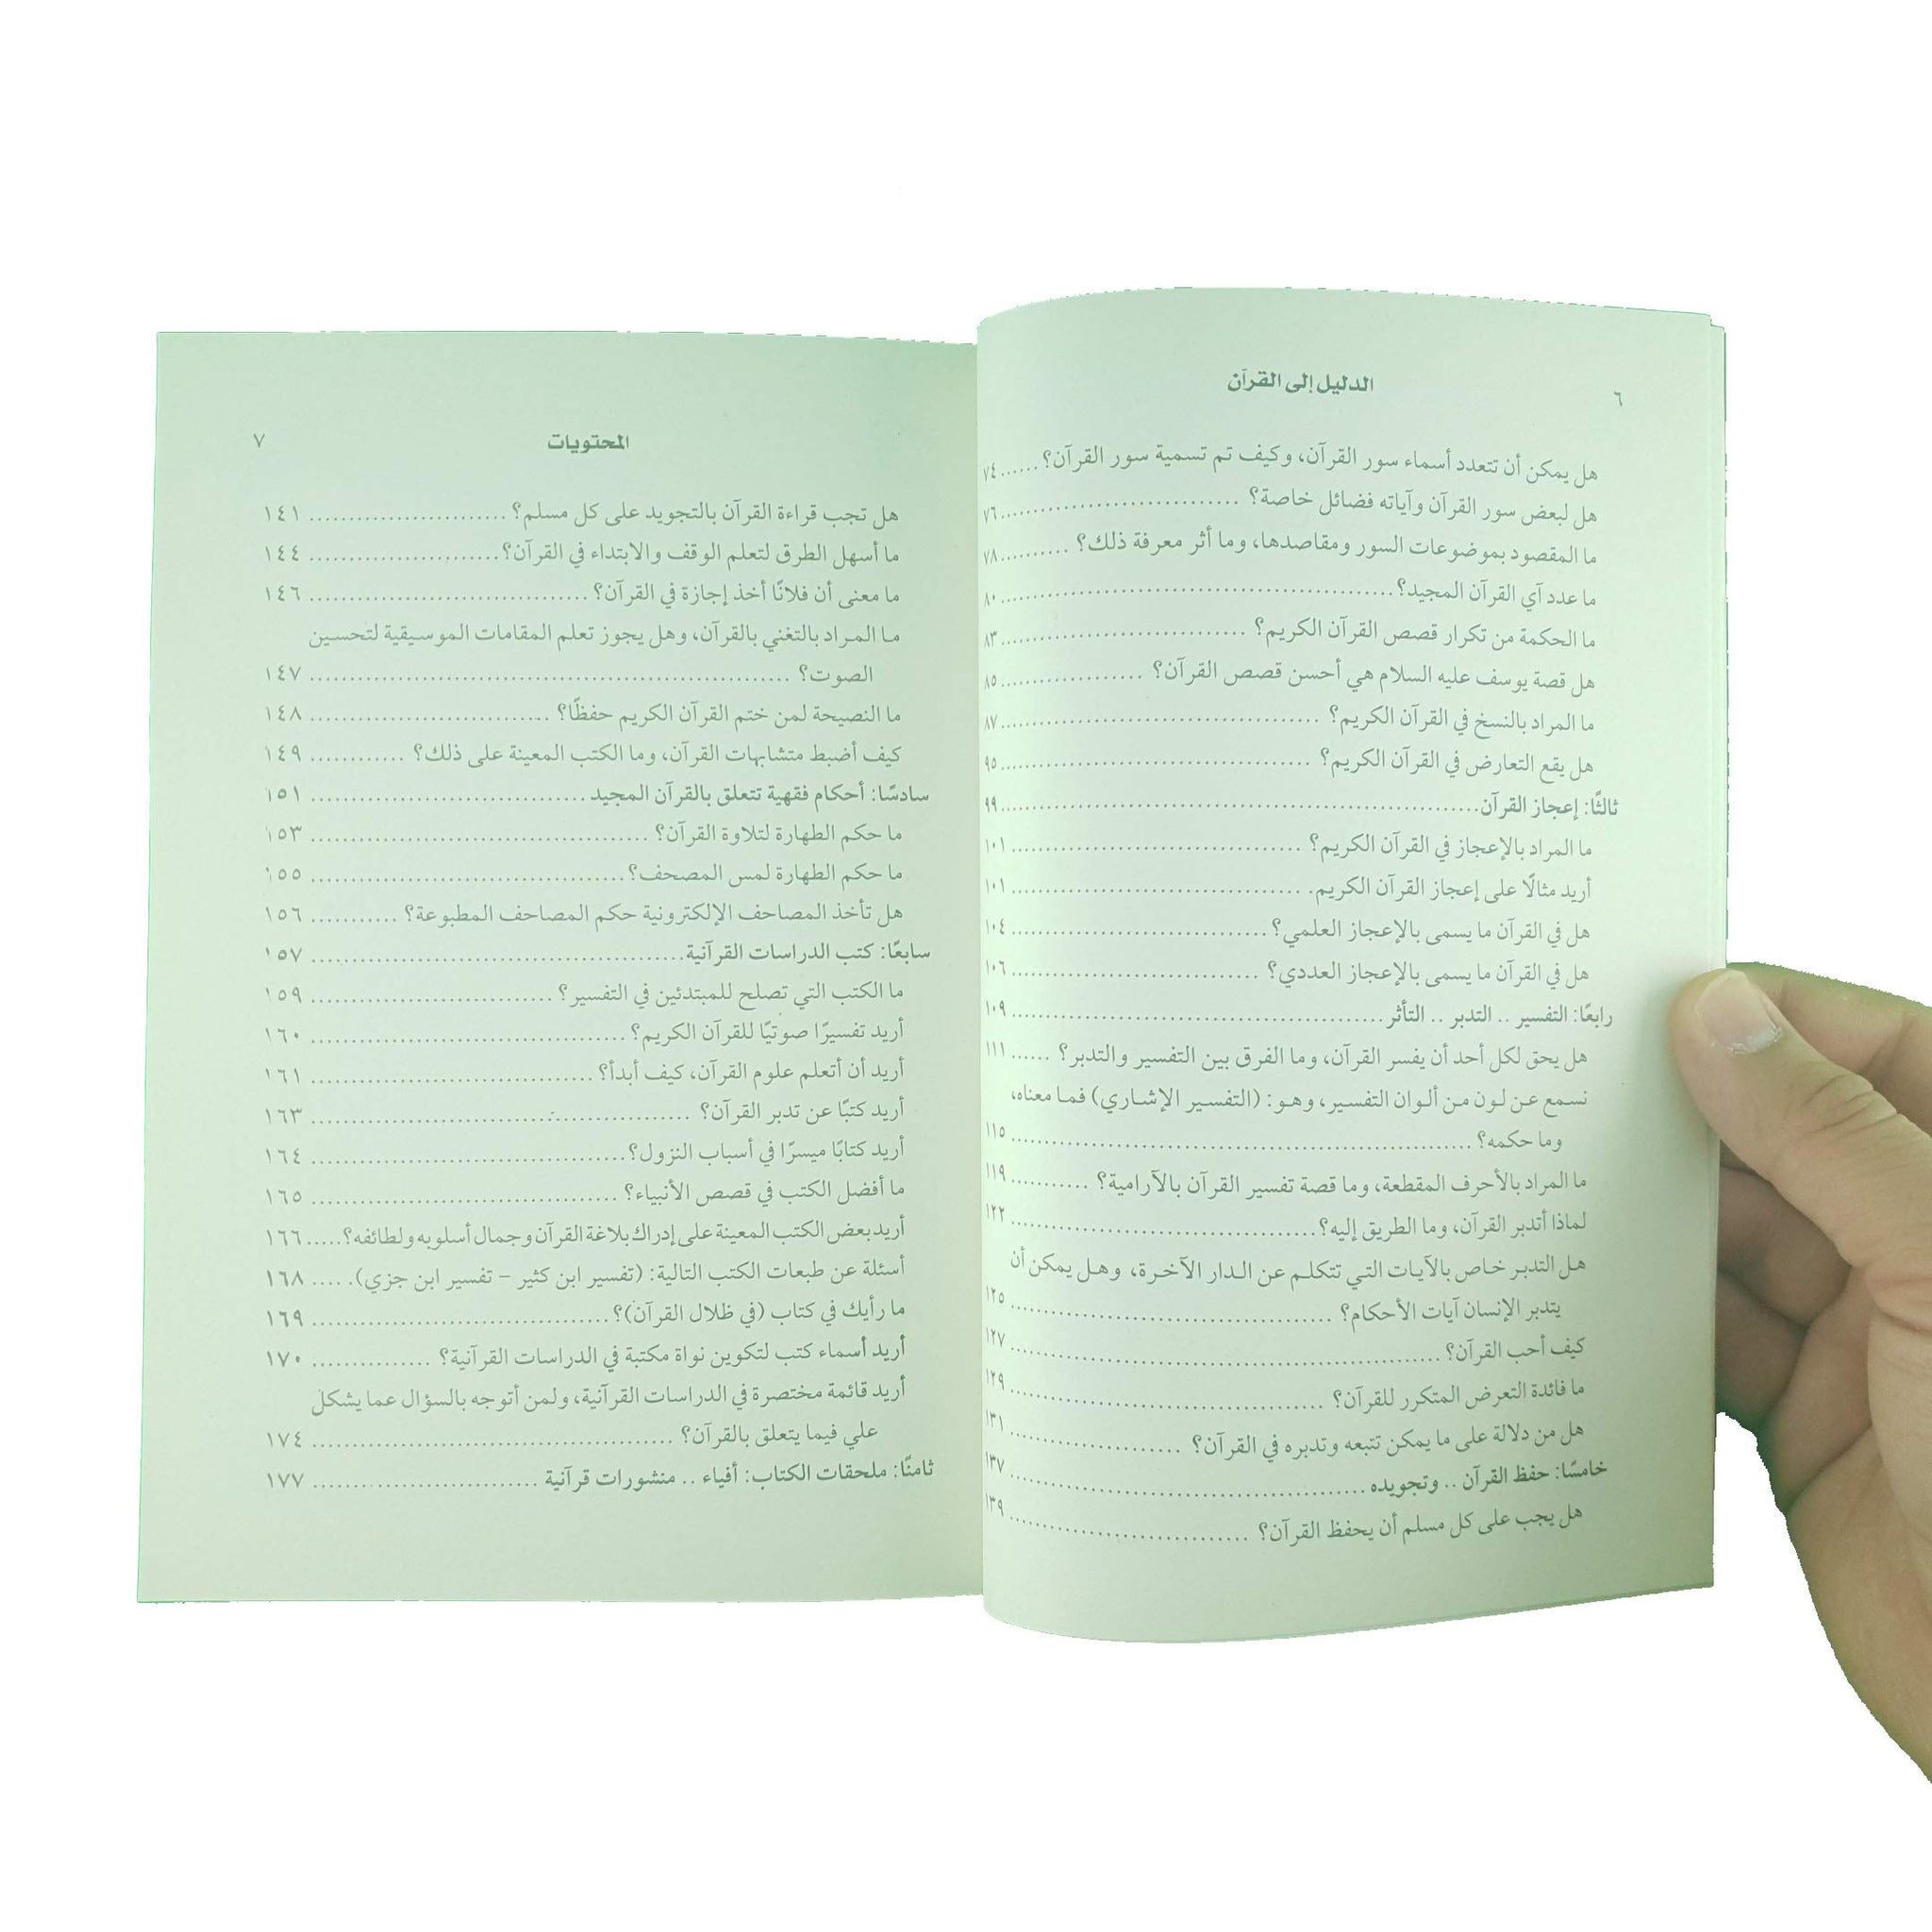 ٦
الدليل إلى القرآن
هل يمكن أن تتعدد أسماء سور القرآن، وكيف تم تسمية سور القرآن؟ ...... ٧٤
هل لبعض سور القرآن وآياته فضائل خاصة؟ .............................. ٧٦
ما المقصود بموضوعات السور ومقاصدها، وما أثر معرفة ذلك؟ .......... ٧٨
ما عدد آي القرآن المجيد؟ .................................................. ٨٠
ما الحكمة من تكرار قصص القرآن الكريم؟ ................................ ٨٣
هل قصة يوسف عليه السلام هي أحسن قصص القرآن؟ ................... ٨٥
ما المراد بالنسخ في القرآن الكريم؟ ........................................ ٨٧
هل يقع التعارض في القرآن الكريم؟ ........................................ ٩٥
ثالثًا: إعجاز القرآن ............................................................ ٩٩
ما المراد بالإعجاز في القرآن الكريم؟ ..................................... ١٠١
أريد مثالًا على إعجاز القرآن الكريم. ..................................... ١٠١
هل في القرآن ما يسمى بالإعجاز العلمي؟ ................................ ١٠٤
هل في القرآن ما يسمى بالإعجاز العددي؟ ............................... ١٠٦
رابعًا: التفسير .. التدبر .. التأثر ............................................... ١٠٩
هل يحق لكل أحد أن يفسر القرآن، وما الفرق بين التفسير والتدبر؟ ...... ١١١
نسمع عن لون من ألوان التفسير، وهو: (التفسير الإشاري) فما معناه،
وما حكمه؟ .......................................................... ١١٥
ما المراد بالأحرف المقطعة، وما قصة تفسير القرآن بالآرامية؟ .......... ١١٩
لماذا أتدبر القرآن، وما الطريق إليه؟ ....................................... ١٢٢
هل التدبر خاص بالآيات التي تتكلم عن الدار الآخرة، وهل يمكن أن
يتدبر الإنسان آيات الأحكام؟ ......................................... ١٢٥
كيف أحب القرآن؟ ...................................................... ١٢٧
ما فائدة التعرض المتكرر للقرآن؟ ........................................ ١٢٩
هل من دلالة على ما يمكن تتبعه وتدبره في القرآن؟ ..................... ١٣١
خامسًا: حفظ القرآن .. وتجويده ............................................. ١٣٧
هل يجب على كل مسلم أن يحفظ القرآن؟ .............................. ١٣٩
المحتويات
٧
هل تجب قراءة القرآن بالتجويد على كل مسلم؟ ......................... ١٤١
ما أسهل الطرق لتعلم الوقف والابتداء في القرآن؟ ........................ ١٤٤
ما معنى أن فلانًا أخذ إجازة في القرآن؟ ................................... ١٤٦
ما المراد بالتغني بالقرآن، وهل يجوز تعلم المقامات الموسيقية لتحسين
الصوت؟ ............................................................. ١٤٧
ما النصيحة لمن ختم القرآن الكريم حفظًا؟ .............................. ١٤٨
كيف أضبط متشابهات القرآن، وما الكتب المعينة على ذلك؟ ............ ١٤٩
سادسًا: أحكام فقهية تتعلق بالقرآن المجيد ................................... ١٥١
ما حكم الطهارة لتلاوة القرآن؟ ........................................... ١٥٣
ما حكم الطهارة لمس المصحف؟ ........................................ ١٥٥
هل تأخذ المصاحف الإلكترونية حكم المصاحف المطبوعة؟ ........... ١٥٦
سابعًا: كتب الدراسات القرآنية ............................................... ١٥٧
ما الكتب التي تصلح للمبتدئين في التفسير؟ .............................. ١٥٩
أريد تفسيرًا صوتيًا للقرآن الكريم؟ ........................................ ١٦٠
أريد أن أتعلم علوم القرآن، كيف أبدأ؟ .................................... ١٦١
أريد كتبًا عن تدبر القرآن؟ ................................................ ١٦٣
أريد كتابًا ميسرًا في أسباب النزول؟ ........................................ ١٦٤
ما أفضل الكتب في قصص الأنبياء؟ ...................................... ١٦٥
أريد بعض الكتب المعينة على إدراك بلاغة القرآن وجمال أسلوبه ولطائفه؟ ..... ١٦٦
أسئلة عن طبعات الكتب التالية: (تفسير ابن كثير – تفسير ابن جزي). ..... ١٦٨
ما رأيك في كتاب (في ظلال القرآن)؟ ...................................... ١٦٩
أريد أسماء كتب لتكوين نواة مكتبة في الدراسات القرآنية؟ ............... ١٧٠
أريد قائمة مختصرة في الدراسات القرآنية، ولمن أتوجه بالسؤال عما يشكل
علي فيما يتعلق بالقرآن؟ .............................................. ١٧٤
ثامنًا: ملحقات الكتاب: أفياء .. منشورات قرآنية ............................ ١٧٧